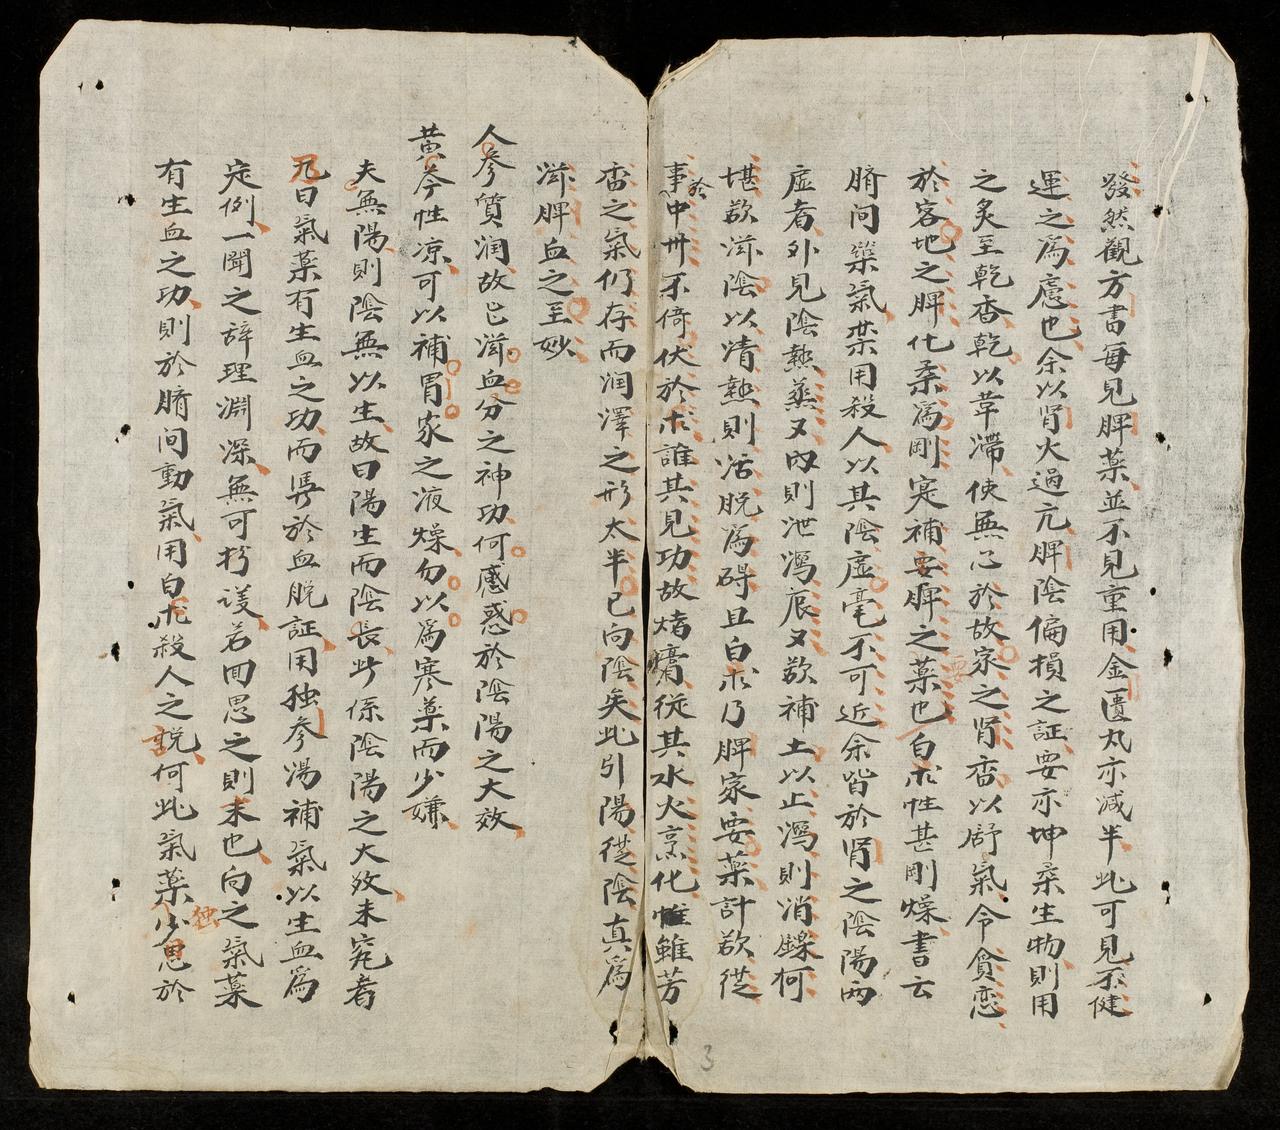 發然觀方書每見脾薬並不見重用金匱丸亦減半此可見不健
運之爲慮也余以肾火過亢脾陰偏損之証要亦坤柔生物則用
之炙至乾香乾以草滯使無心於故家之肾香以舒氣令貪恋
於客地之脾化柔爲剛寔補要脾之薬也白朮性甚剛燥書云
臍间築氣朮用殺人以其陰虚毫不可近余皆於肾之陰陽両
虚者外見陰熱蒸又内則泄瀉痕又欲補土以止瀉則消鑠何
堪欲滋陰以清熱則活脱爲碍且白朮乃脾家要薬計欲從
事於中州不倚伏於朮誰其見功故煿從其水火烹化惟雖芳
香之氣仍存而润澤之形太半已向陰矣此引陽從陰真爲
滋脾血之至妙
人參質润故已滋血分之神功何慮惑於陰陽之大效
黄芩性凉可以補胃家之液燥勿以爲寒薬而少嫌
夫無陽則陰無以生故曰陽生而陰長此係陰陽之大效未究者
凡曰氣薬有生血之功而專於血脱証用独參湯補氣以生血爲
定例一聞之辞理淵深無可抒议若回思之則未也向之氣薬
有生血之功則於臍间動氣用白朮殺人之說何此氣薬独少思於
3